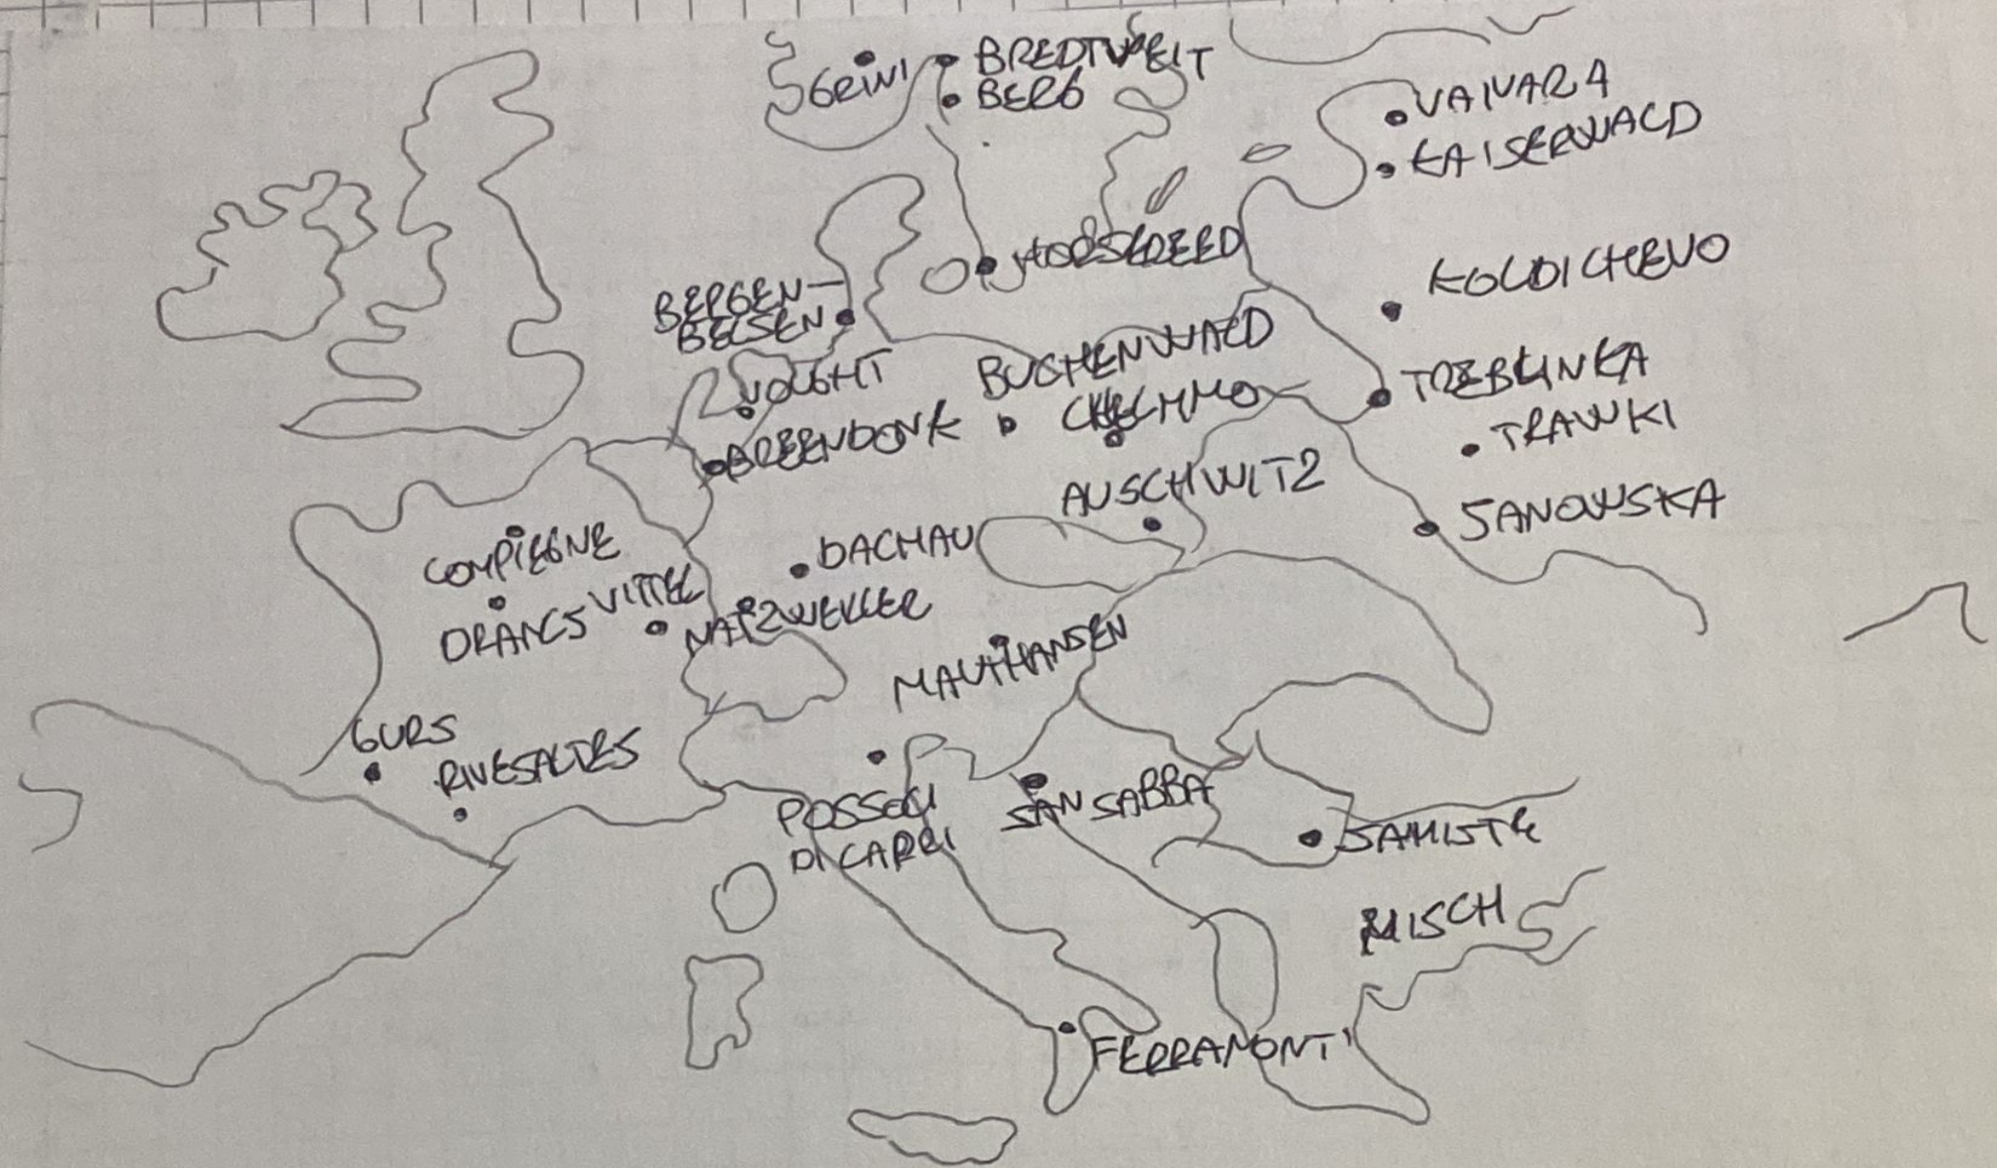 GRINI
BREDTVEIT
BERG
VAIVARA
KAISERWALD
HORSEREED
KOLDICHEVO
BERGEN-
BELSEN
VOUGHT
BUCHENWALD
CHELMNO
TREBLINKA
TRAWKI
BREENDONK
AUSCHWITZ
JANOWSKA
COMPIEGNE
DACHAU
DRANCS
VITTEL
NATZWELLER
MAUTHANSEN
GURS
RIVESALTES
POSSOLI
DI CARRI
SAN SABBA
SAMISTE
MISCH
FERRAMONTI